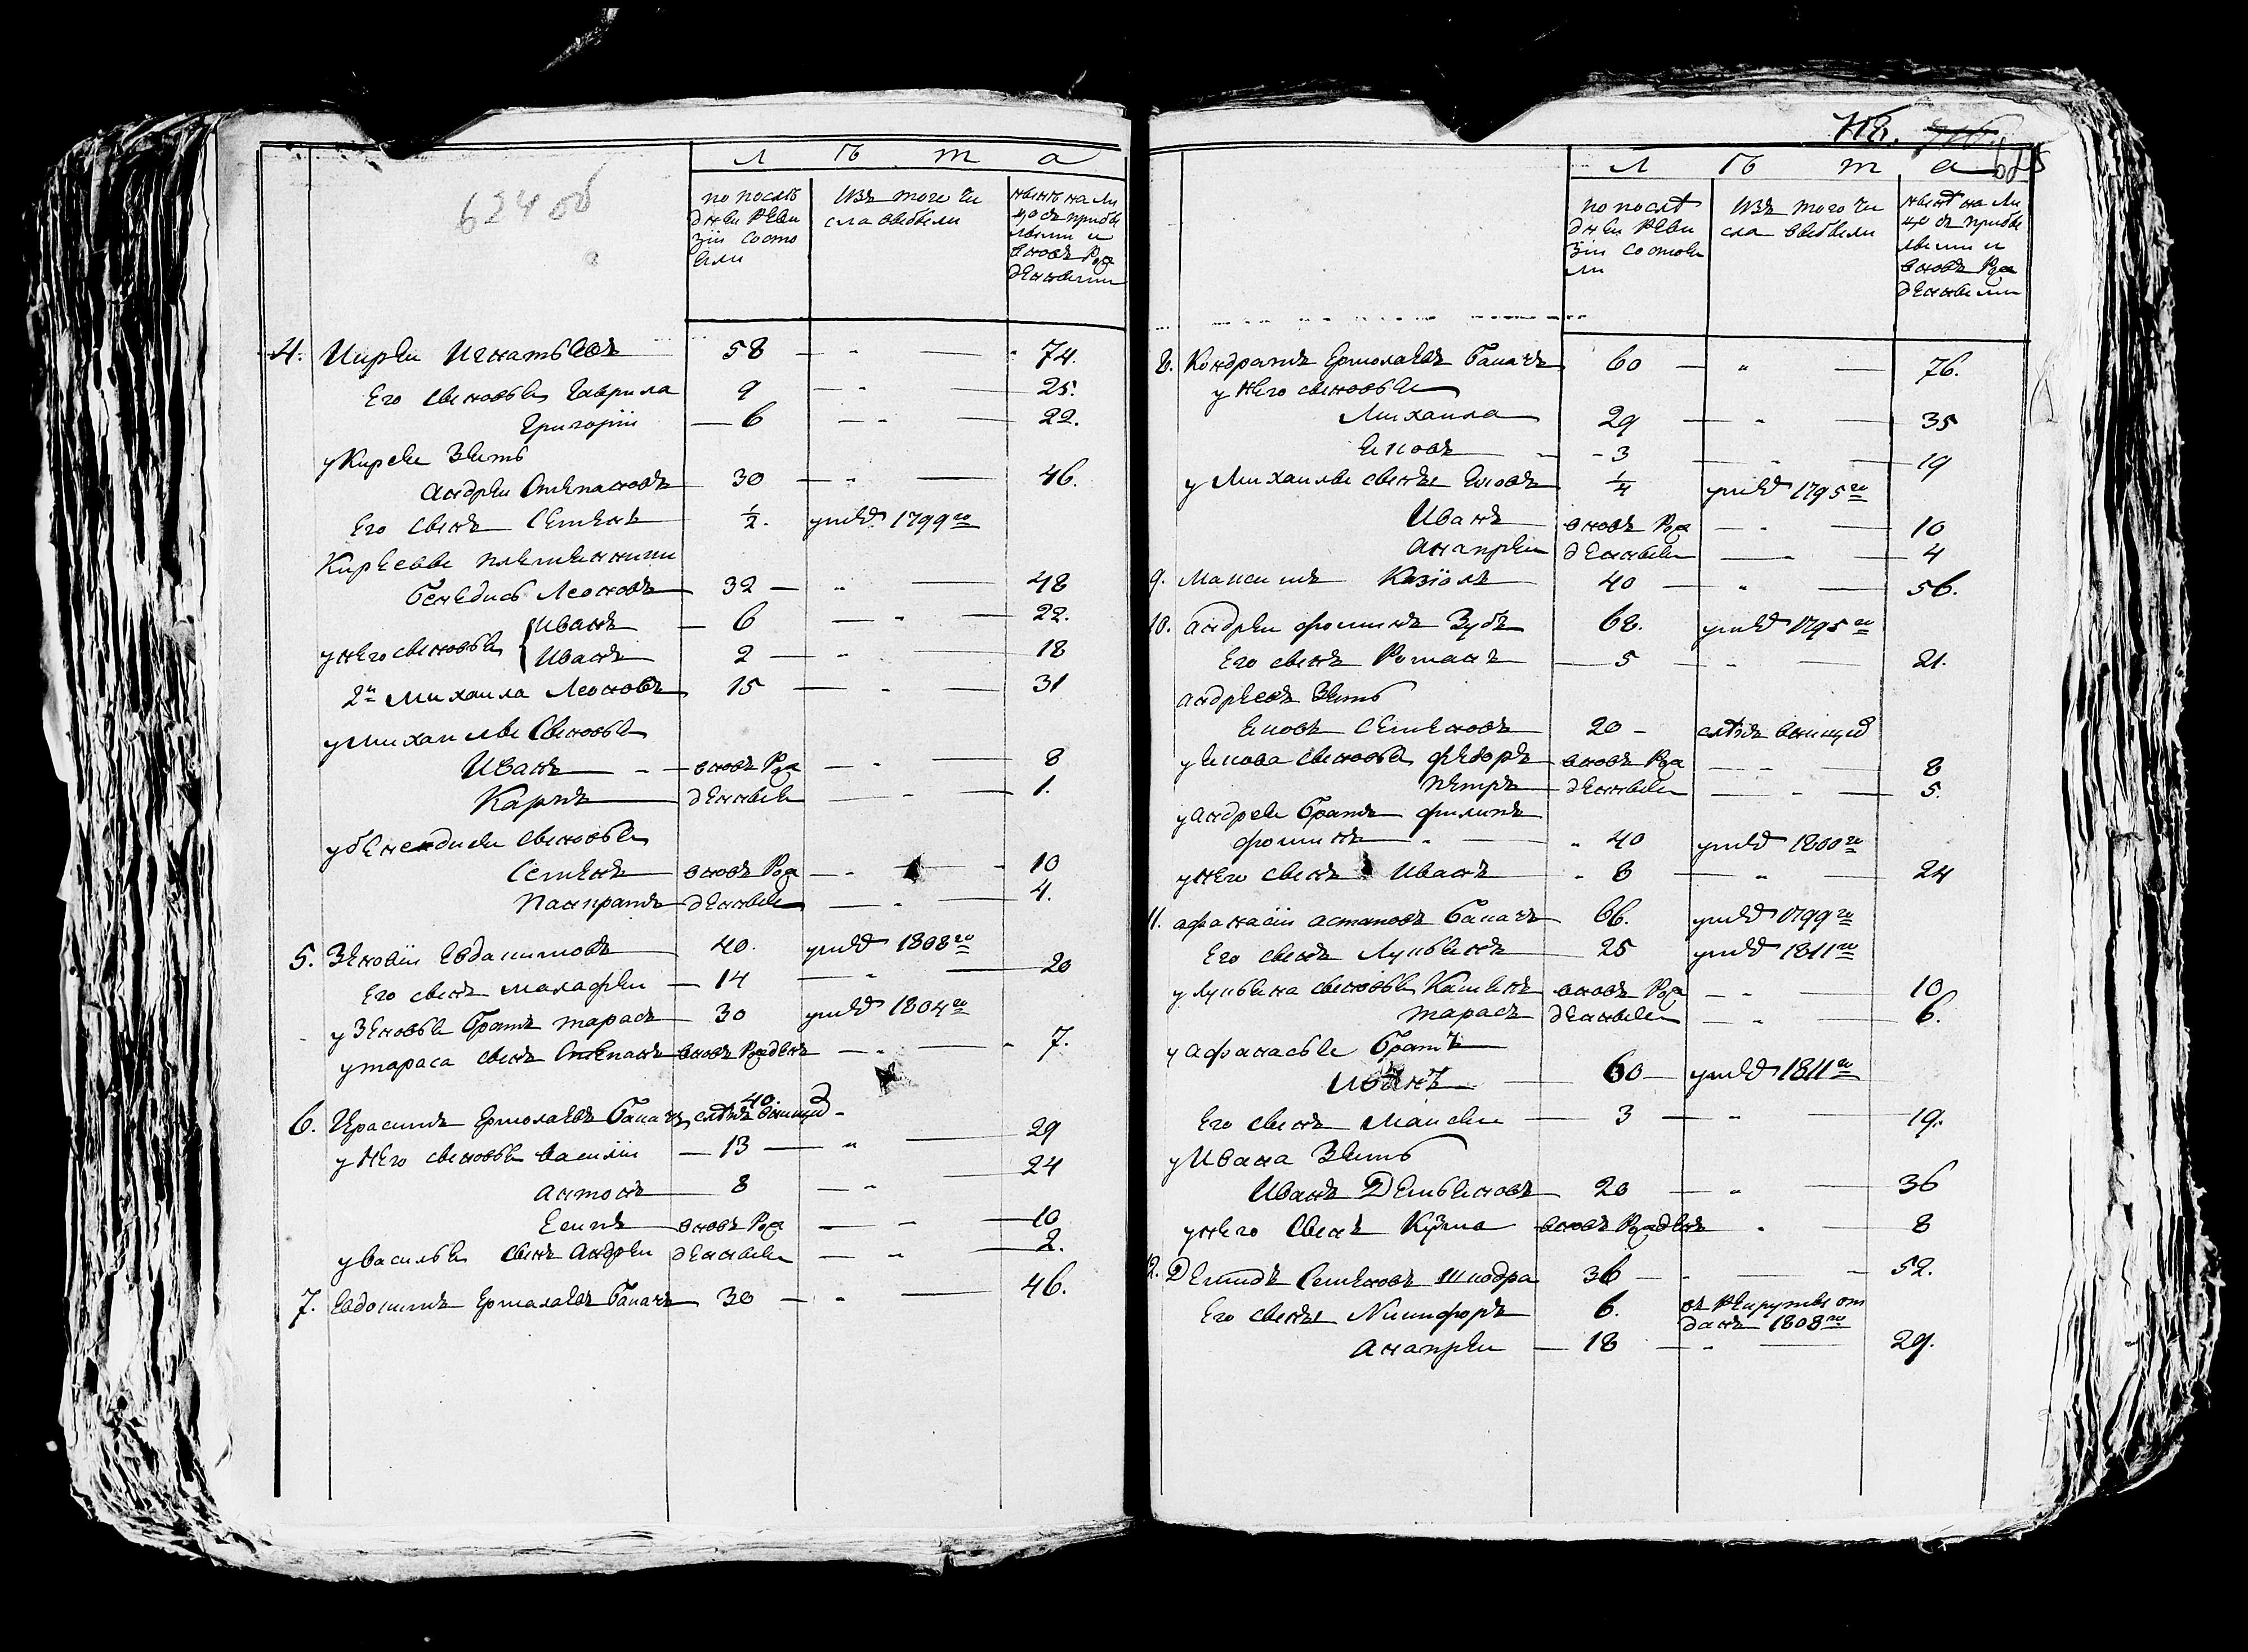 624 об
Л Ѣ т а
по послѣ
дней Реви
зіи состо
яли
изъ того чи
сла выбыли
нынѣ на ли
цо съ прибы
лыми и
вновь Рож
денными
4. Кирѣй Игнатьевъ 58 — 74.
Его сыновья Гаврила 9 — 25.
Григорій 6 — 22.
у Кирея Зять
Андрей Степановъ 30 — 46.
Его сынъ Семенъ ½. умеръ 1799го
Киреевы племянники
Бенедисъ Леоновъ 32 — 48
у него сыновья Иванъ 6 — 22.
Иванъ 2 — 18
2й Михаила Леоновъ 15 — 31
у Михаилы Сыновья
Иванъ вновь Рож — 8
Карпъ денныя — 1.
у Бенендися сыновья
Семенъ вновь Рож — 10
Панкратъ денныя — 4.
5. Зеновій Евдакимовъ 40. умеръ 1808го
Его сынъ Малафей 14 — 20
у Зеновья братъ Тарасъ 30 умеръ 1804го
у Тараса сынъ Степанъ вновь Рожденъ — 7.
6. Герасимъ Ермолаевъ Бакачъ 40. слѣпъ внищих
у него сыновья Василій 13 — 29
Антонъ 8 — 24
Есипъ вновь Рож — 10
у Василья сынъ Андрей денныя — 2.
7. Евдокимъ Ермалаевъ Бакачъ 30 — 46.
718. 716. 625
Л Ѣ т а
по послѣ
дней Реви
зіи состоя
ли
изъ того чи
сла выбыли
нынѣ на ли
цо съ прибы
лыми и
вновь Рож
денными
8. Кондратъ Ермолаевъ Бакачъ 60 — 76.
у него сыновья
Михаила 29 — 35
Яковъ 3 — 19
у Михаилы сыны Яковъ ¼ умеръ 1795го
Иванъ вновь Рож — 10
Анапрей денныя — 4
9. Максимъ Казіолъ 40 — 56.
10. Андрей Фоминъ Зубъ 68. умеръ 1795го
Его сынъ Романъ 5 — 21.
Андреевъ Зять
Яковъ Семеновъ 20 слѣпъ внищих
у Якова сыновья Федоръ вновь Рож — 8
Петръ денныя — 5.
у Андрея братъ Филипъ
Фоминъ 40 умеръ 1800го
у него сынъ Иванъ 8 — 24
11. Афанасій Астаповъ Бакачъ 66. умеръ 1799го
Его сынъ Лукьянъ 25 умеръ 1811го
у Лукьяна сыновья Касьянъ вновь Рож — 10
Тарасъ денныя — 6.
у Афанасья братъ
Иванъ 60 умеръ 1811го
Его сынъ Маисеи 3 — 19.
у Ивана Зять
Иванъ Демьяновъ 20 — 36
у него сынъ Кузма вновь Рожденъ — 8
12. Демидъ Семеновъ Шкодра 36 — 52.
Его сыны Никифоръ 6. въ Рекруты от
данъ 1808го
Анапрей 18 — 29.